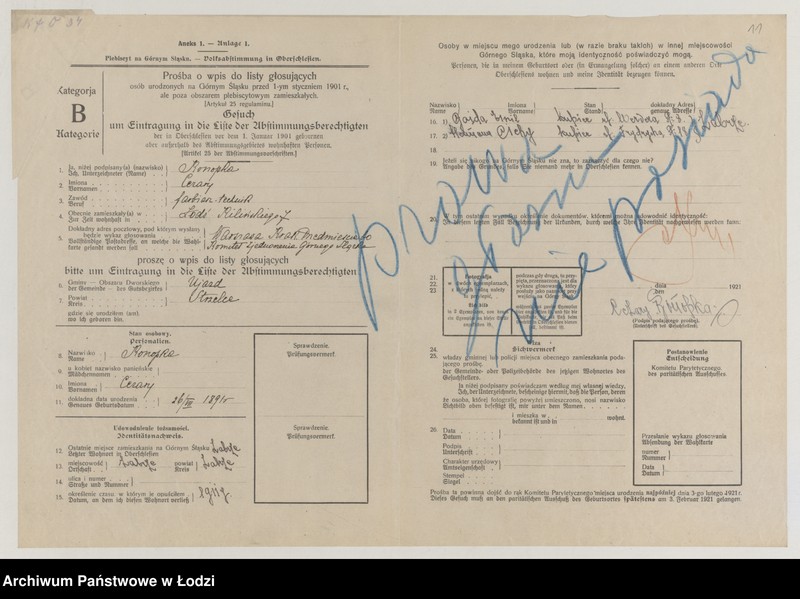 11
Aneks 1. — Anlage 1.
Plebiscyt na Górnym Śląsku. — Volksabstimmung in Oberschlesien.
Kategorja
B
Kategorie
Prośba o wpis do listy głosujących
osób urodzonych na Górnym Śląsku przed 1-ym styczniem 1901 r.,
ale poza obszarem plebiscytowym zamieszkałych.
[Artykuł 25 regulaminu.]
Gesuch
um Eintragung in die Liste der Abstimmungsberechtigten
der in Oberschlesien vor dem 1. Januar 1901 geborenen
aber außerhalb des Abstimmungsgebietes wohnhaften Personen.
[Artikel 25 der Abstimmungsvorschriften.]
1. Ja, niżej podpisany(a) (nazwisko)
Ich, Unterzeichneter (Name)
Konopka
2. Imiona
Vornamen
Cezary
3. Zawód
Beruf
4. Obecnie zamieszkały(a) w
Zur Zeit wohnhaft in
Łódź Kilińskiego 7
5. Dokładny adres pocztowy, pod którym wysłany
będzie wykaz głosowania
Vollständige Postadresse, an welche die Wahl-
karte gesandt werden soll
Warszawa Krak. Przedmieście
Komitet Zjednoczenia Górnego Śląska
proszę o wpis do listy głosujących
bitte um Eintragung in die Liste der Abstimmungsberechtigten
6. Gminy - Obszaru Dworskiego
der Gemeinde - des Gutsbezirkes
Ujazd
7. Powiat
Kreis
Strzelce
gdzie się urodziłem (am).
wo ich geboren bin.
Stan osobowy.
Personalien.
8. Nazwisko
Name
Konopka
9. u kobiet nazwisko panieńskie
Mädchennamen
10. Imiona
Vornamen
Cezary
11. dokładna data urodzenia
Genaues Geburtsdatum
Sprawdzenie.
Prüfungsvermerk.
Udowodnienie tożsamości.
Identitätsnachweis.
12. Ostatnie miejsce zamieszkania na Górnym Śląsku
Letzter Wohnort in Oberschlesien
Zabrze
13. miejscowość
Ortschaft
Zabrze
powiat
Kreis
Zabrze
14. ulica i numer
Straße und Nummer
15. określenie czasu w którym je opuściłem
Datum, an dem ich diesen Wohnort verließ
Sprawdzenie.
Prüfungsvermerk.
Osoby w miejscu mego urodzenia lub (w razie braku takich) w innej miejscowości
Górnego Śląska, które moją identyczność poświadczyć mogą.
Personen, die in meinem Geburtsort oder (in Ermangelung solcher) an einem anderen Ort
Oberschlesiens wohnen und meine Identität bezeugen können.
Nazwisko
Name
Imiona
Vorname
Stan
Stand
dokładny Adres
genaue Adresse
16. 1)
17. 2)
Zabrze
18.
19. Jeżeli się nikogo na Górnym Śląsku nie zna, to zaznaczyć dla czego nie?
Angabe des Grundes, falls Sie niemand mehr in Oberschlesien kennen.
20. W tym ostatnim wypadku określenie dokumentów, którymi można udowodnić identyczność:
prawa
głosu
nie posiada
21.
22.
23.
Fotografja
w dwóch egzemplarzach,
z których jedną należy
tu przylepić,
dnia
den
1921
Cezary Konopka
(Podpis podającego prośbę)
Wiza
Sichtvermerk
24.
25. władzy gminnej lub policji miejsca obecnego zamieszkania poda-
jącego prośbę.
der Gemeinde- oder Polizeibehörde des jetzigen Wohnortes des
Gesuchstellers.
Ja niżej podpisany poświadczam według mej własnej wiedzy,
Ich, der Unterzeichnete, bescheinige hiermit, daß die Person, deren
że osoba, której fotografję powyżej umieszczono, nosi nazwisko
Lichtbild oben befestigt ist, mir unter dem Namen
i mieszka w
bekannt ist und in
wohnt.
26. Data
Datum
Podpis
Unterschrift
Charakter urzędowy
Amtseigenschaft
Stempel
Siegel
Postanowienie
Entscheidung
Komitetu Parytetycznego.
des paritätischen Ausschusses
Przesłanie wykazu głosowania
Absendung der Wahlkarte
numer
Nummer
Data
Datum
Prośba ta powinna dojść do rąk Komitetu Parytetycznego miejsca urodzenia najpóźniej dnia 3-go lutego 1921 r.
Dieses Gesuch muß an den paritätischen Ausschuß des Geburtsortes spätestens am 3. Februar 1921 gelangen.
Archiwum Państwowe w Łodzi